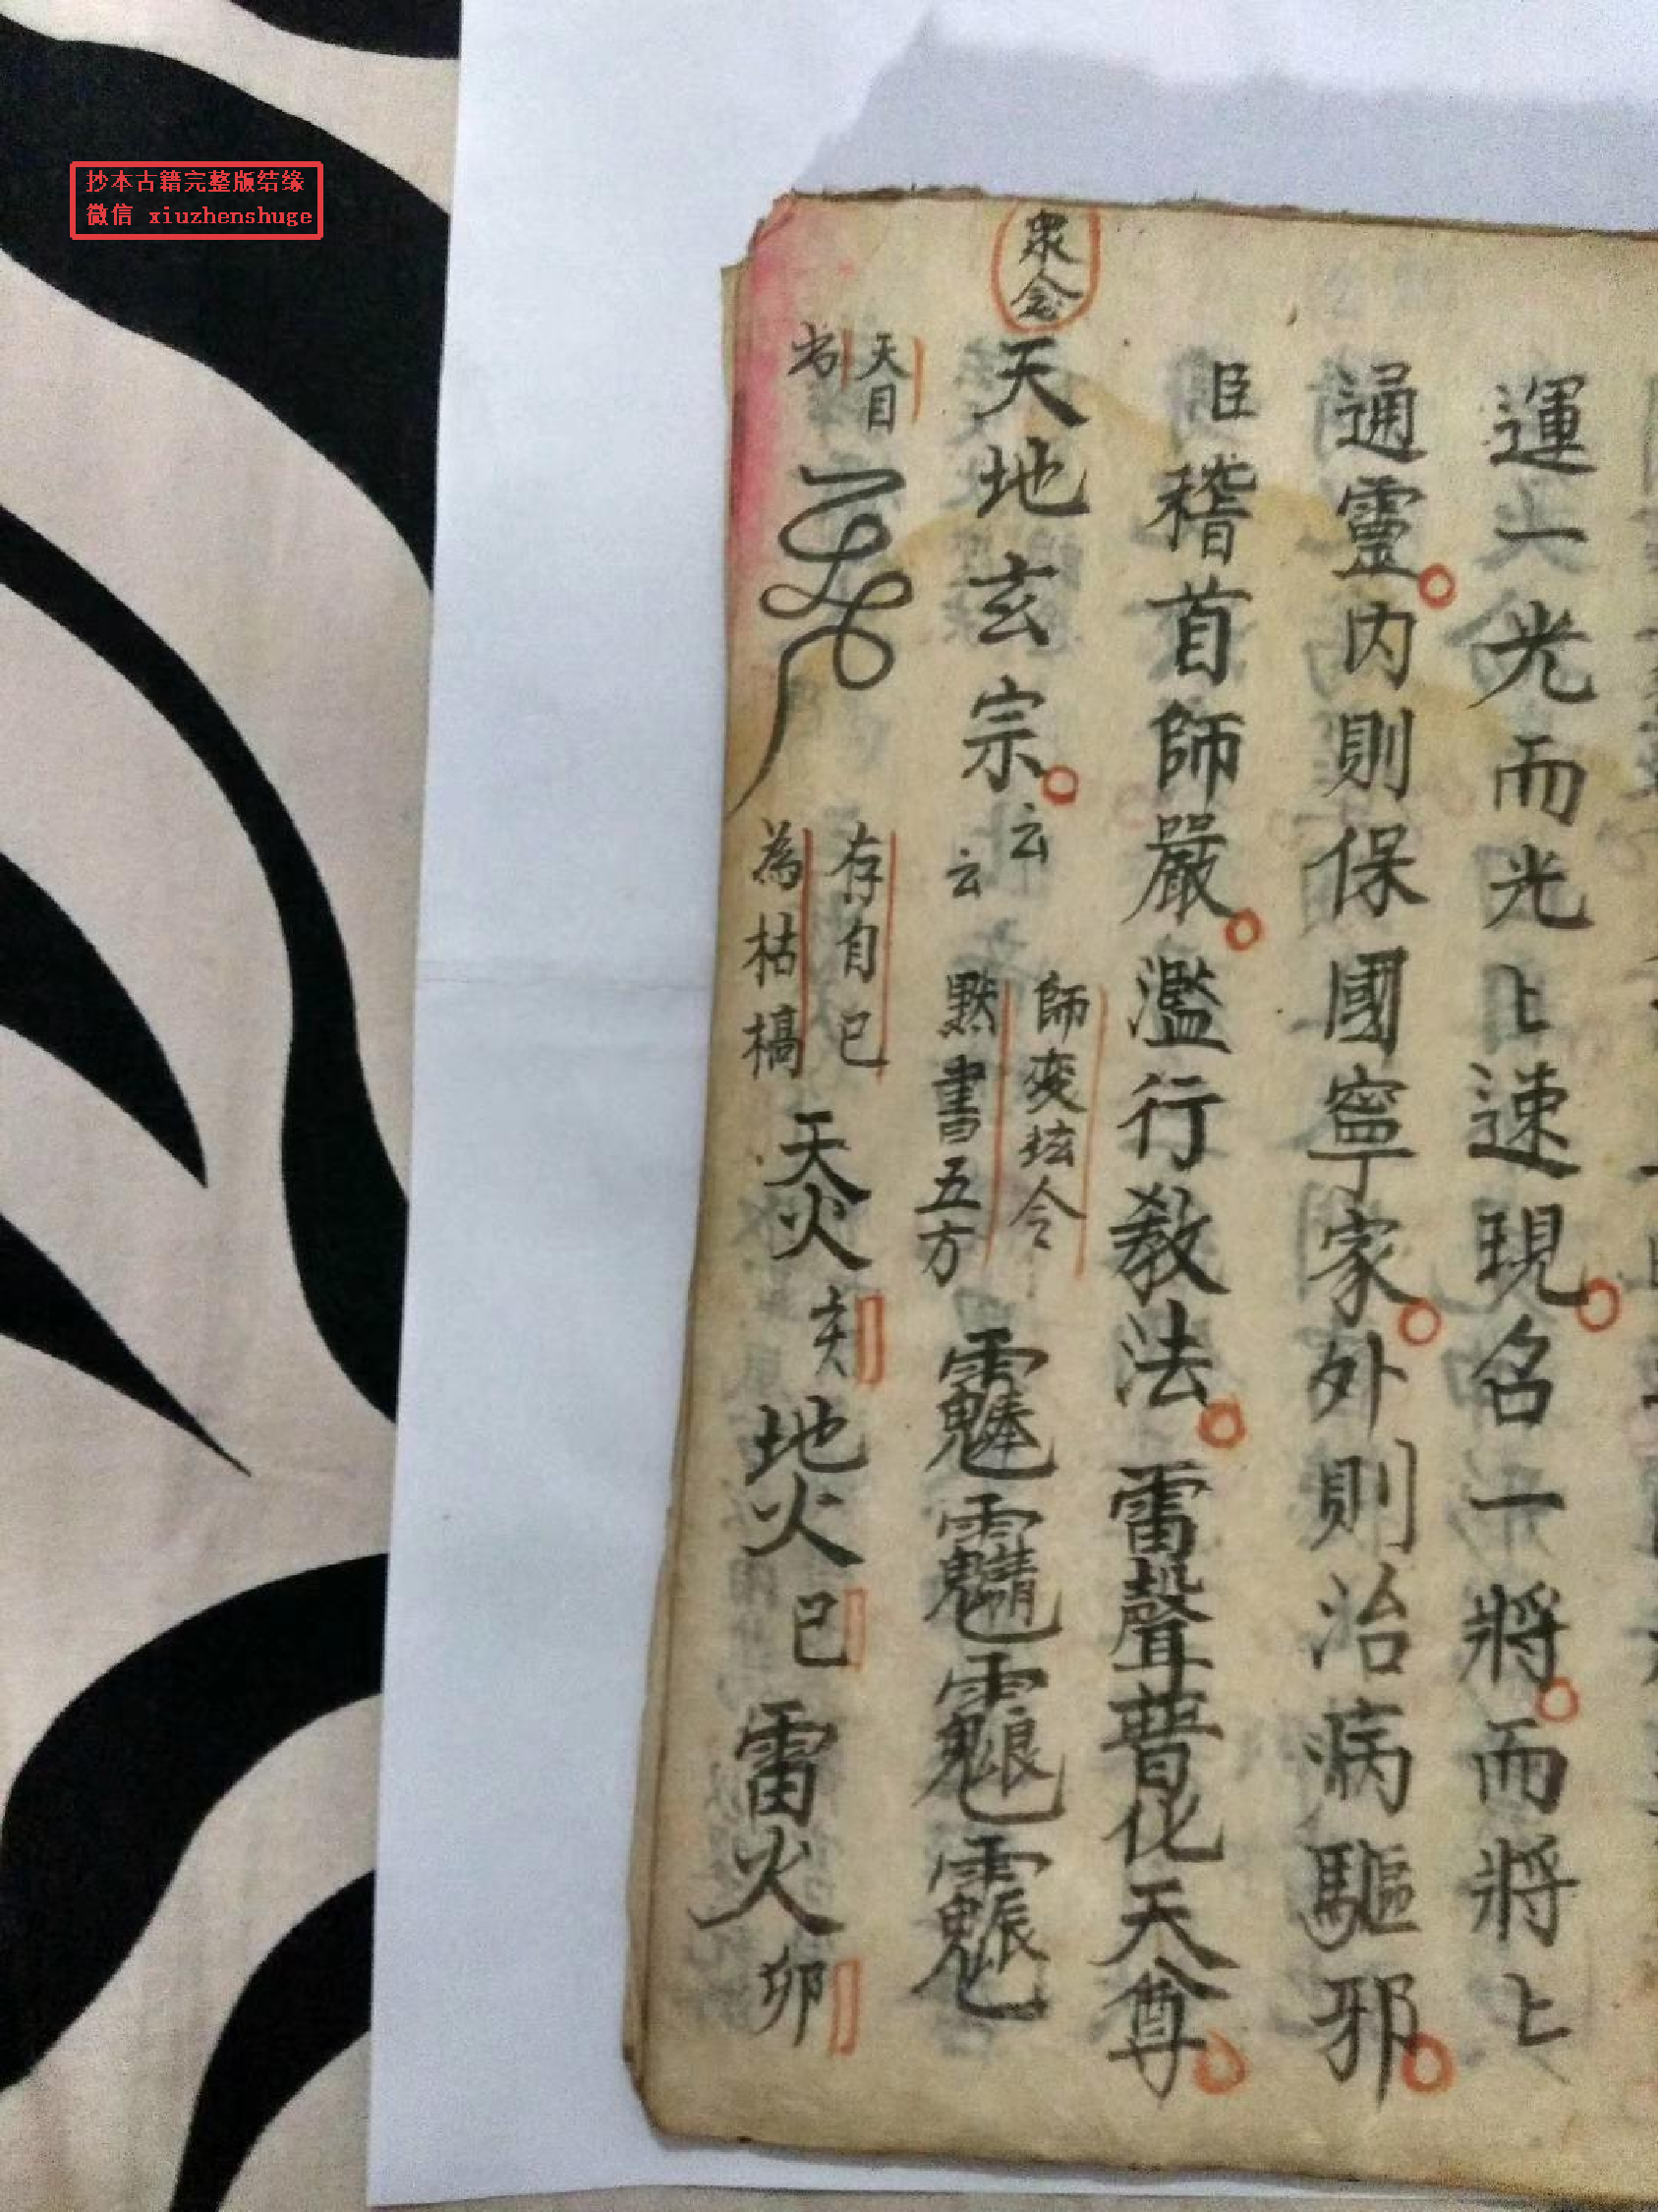 抄本古籍完整版结缘
微信 xiuzhenshuge
運一光而光〻速現。名一將。而將〻
通靈。内則保國寧家。外則治病驅邪。
臣稽首師嚴。濫行教法。雷聲普化天尊。
衆念
天地玄宗。云云
師 令
默書五方
天目
书
存自己
為枯槁
天火 亥 地火 巳 雷火 卯